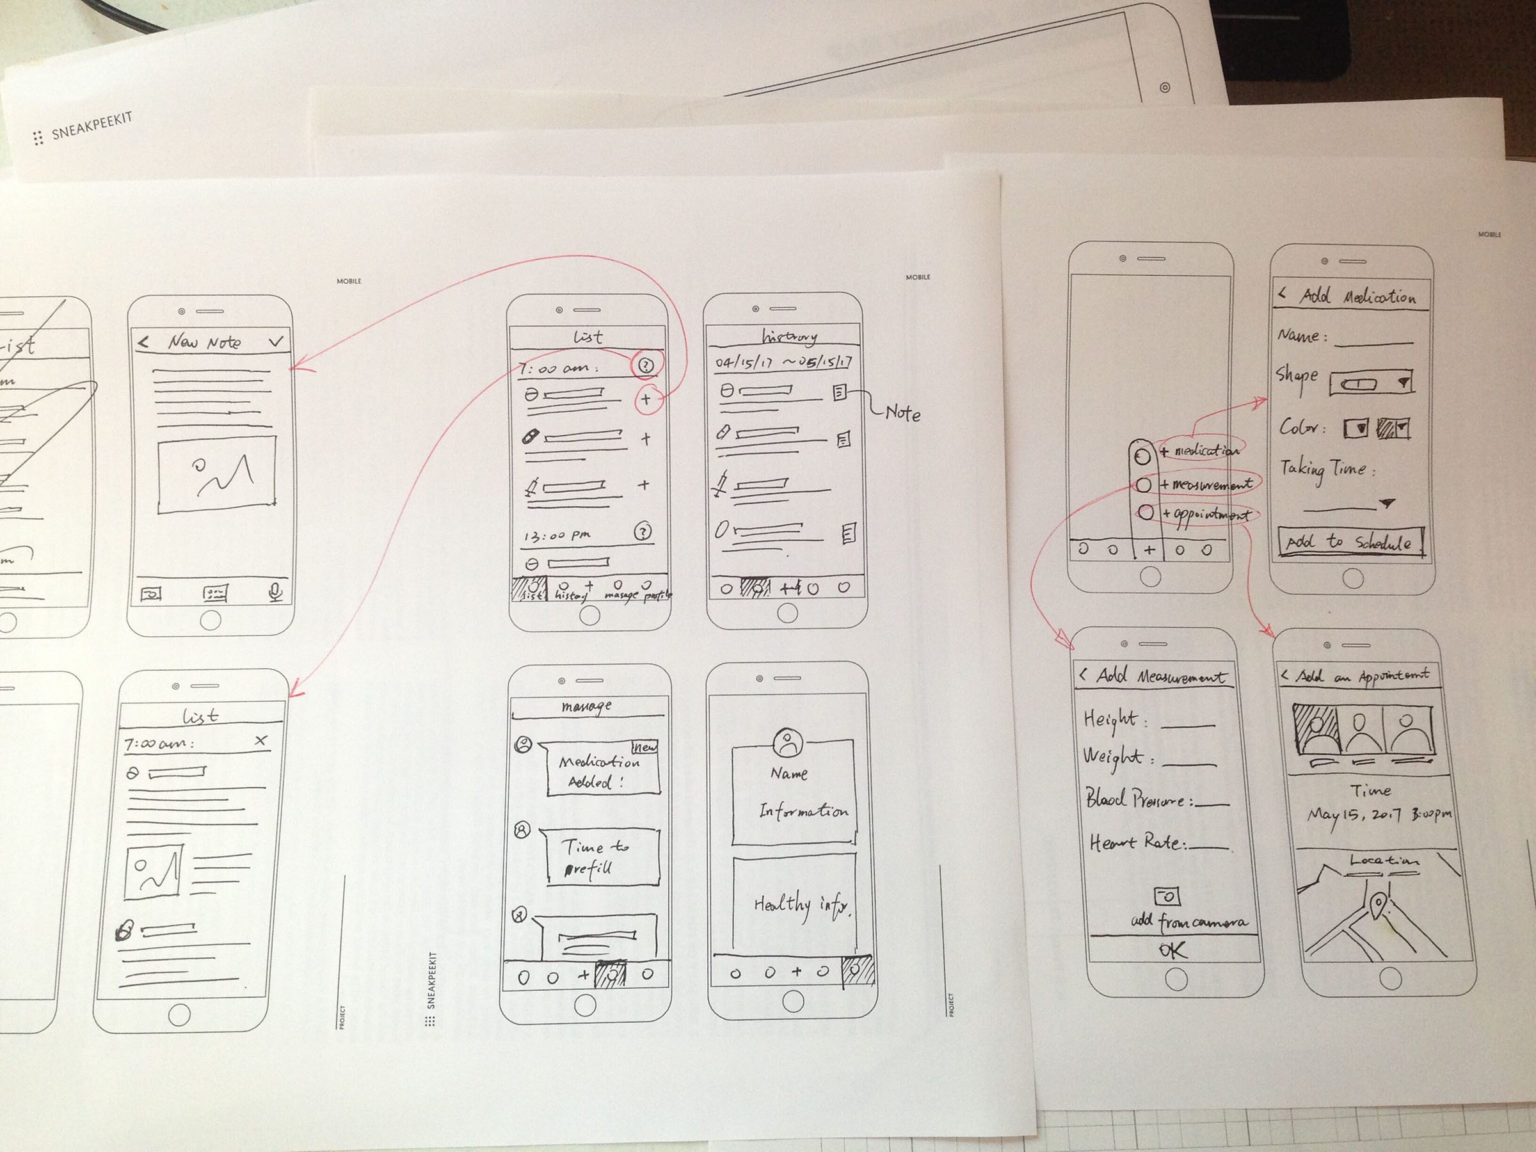 SNEAKPEEKIT
MOBILE
MOBILE
MOBILE
List
< New Note ✓
List
7:00 am:
+
+
+
13:00 pm
list history + manage profile
history
04/15/17 ~ 05/15/17
Note
List
7:00 am: X
manage
new
Medication
Added !
Time to
prefill
+
Name
Information
Healthy infor.
+
PROJECT
SNEAKPEEKIT
PROJECT
+ medication
+ measurement
+ appointment
+
< Add Medication
Name:
Shape
Color:
Taking Time:
Add to Schedule
< Add Measurement
Height:
Weight:
Blood Pressure:
Heart Rate:
add from camera
OK
< Add an Appointemt
Time
May 15, 2017 3:00pm
Location